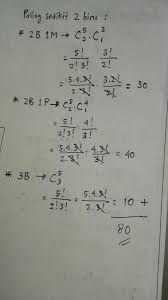 Paling sedikit 2 biru :
* 2B 1M → C⁵₂ . C³₁
= 5!/2!3! . 3!/2!
= 5.4.3!/2.3! . 3.2!/2! = 30
* 2B 1P → C⁵₂ . C⁴₁
= 5!/2!3! . 4!/3!
= 5.4.3!/2.3! . 4.3!/3! = 40
* 3B → C⁵₃
= 5!/2!3! = 5.4.3!/2.3! = 10 +
80